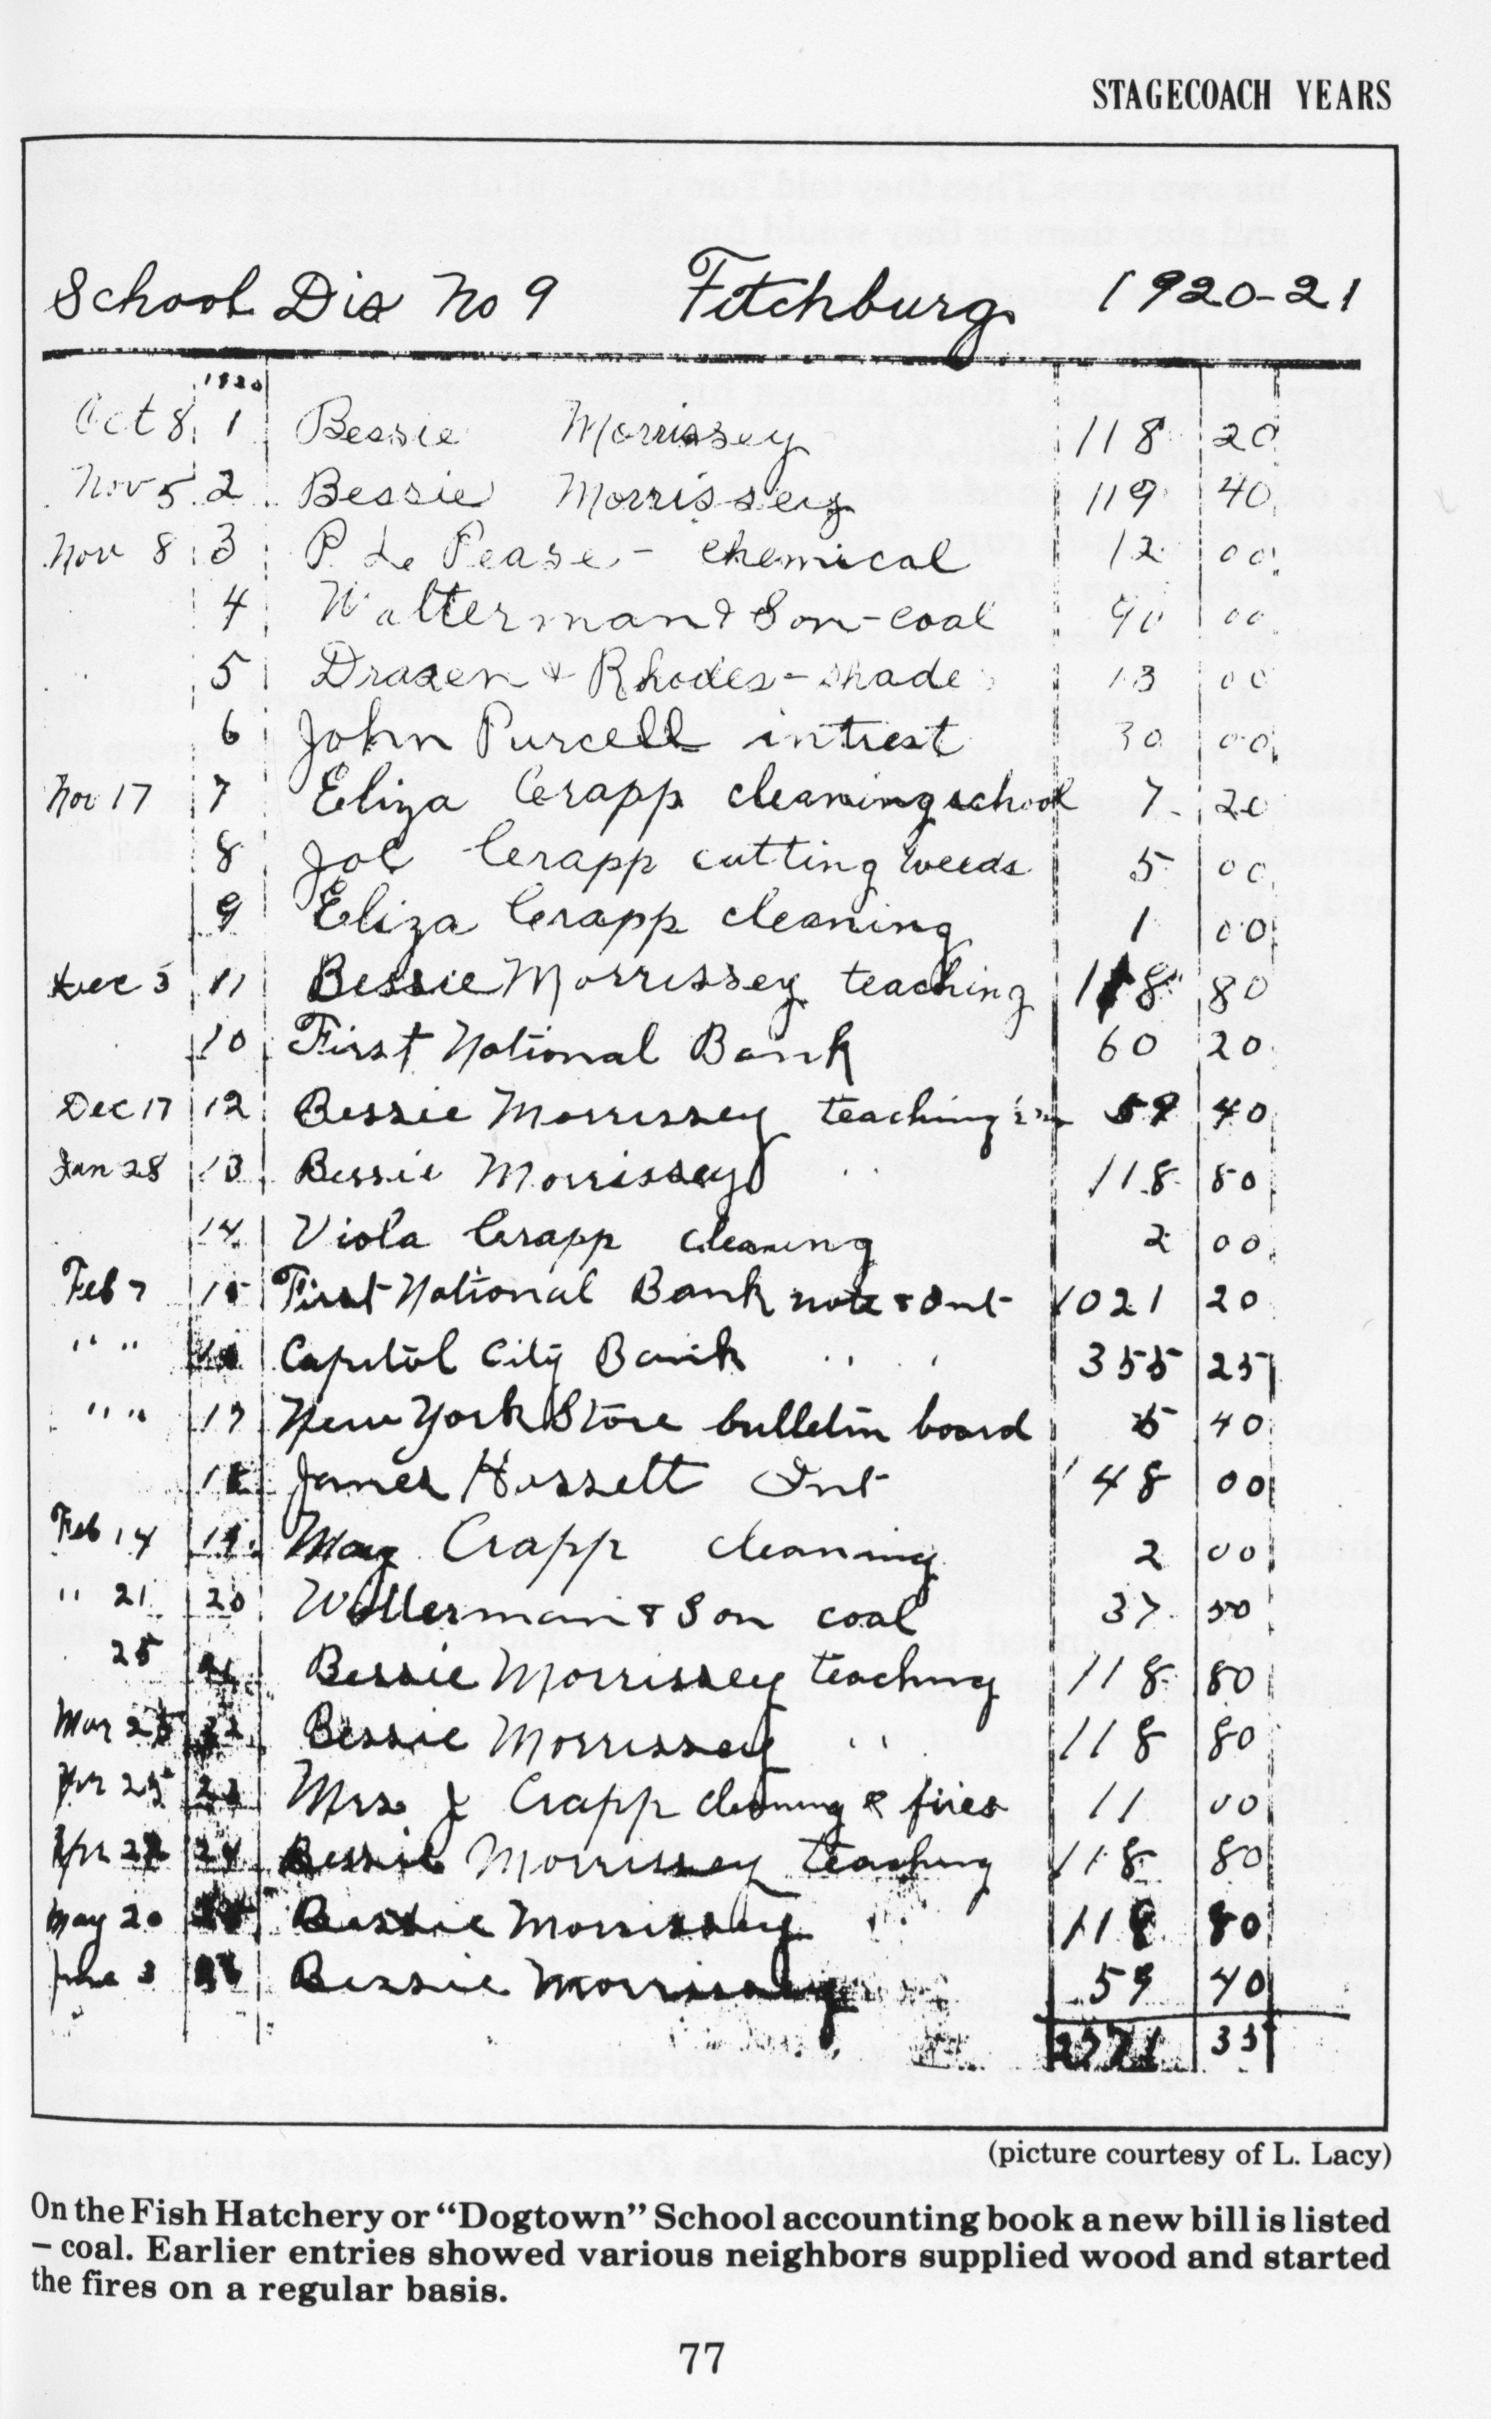 STAGECOACH YEARS
School Dis No 9 Fitchburg 1920-21
1920
Oct 8 1 Bessie Morrissey 118 20
Nov 5 2 Bessie Morrissey 119 40
Nov 8 3 P Le Pease - chemical 12 00
4 Walterman & Son - coal 90 00
5 Drasen & Rhodes - shade 13 00
6 John Purcell intrest 30 00
Nov 17 7 Eliza Crapp cleaning school 7 20
8 Joe Crapp cutting weeds 5 00
9 Eliza Crapp cleaning 1 00
Dec 3 11 Bessie Morrissey teaching 118 80
10 First National Bank 60 20
Dec 17 12 Bessie Morrissey teaching 59 40
Jan 28 13 Bessie Morrissey " 118 80
14 Viola Crapp cleaning 2 00
Feb 7 15 First National Bank note & Int 1021 20
" " 16 Capitol City Bank " " 355 25
" " 17 New York Store bulletin board 5 40
18 James Hossett Int 48 00
Feb 14 19 May Crapp cleaning 2 00
" 21 20 Wolterman & Son coal 37 50
25 21 Bessie Morrissey teaching 118 80
Mar 25 22 Bessie Morrissey " 118 80
23 Mrs J Crapp cleaning & fires 11 00
Apr 24 Bessie Morrissey teaching 118 80
May 20 Bessie Morrissey " 118 80
June 3 Bessie Morrissey 59 40
2771 35
(picture courtesy of L. Lacy)
On the Fish Hatchery or “Dogtown” School accounting book a new bill is listed
– coal. Earlier entries showed various neighbors supplied wood and started
the fires on a regular basis.
77